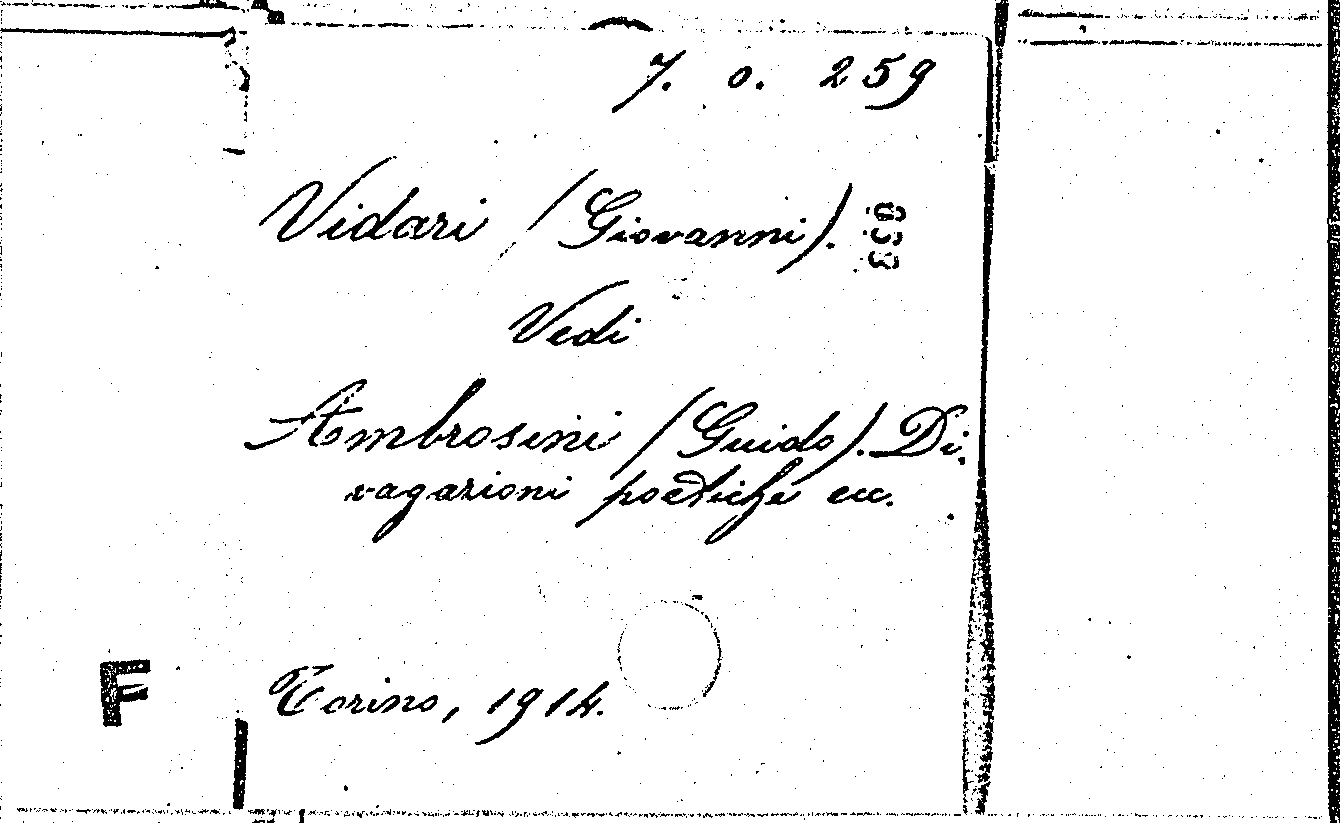 7. o. 259
Vidari (Giovanni).
Vedi
Ambrosini (Guido). Di-
vagazioni poetiche ecc.
F
Torino, 1914.